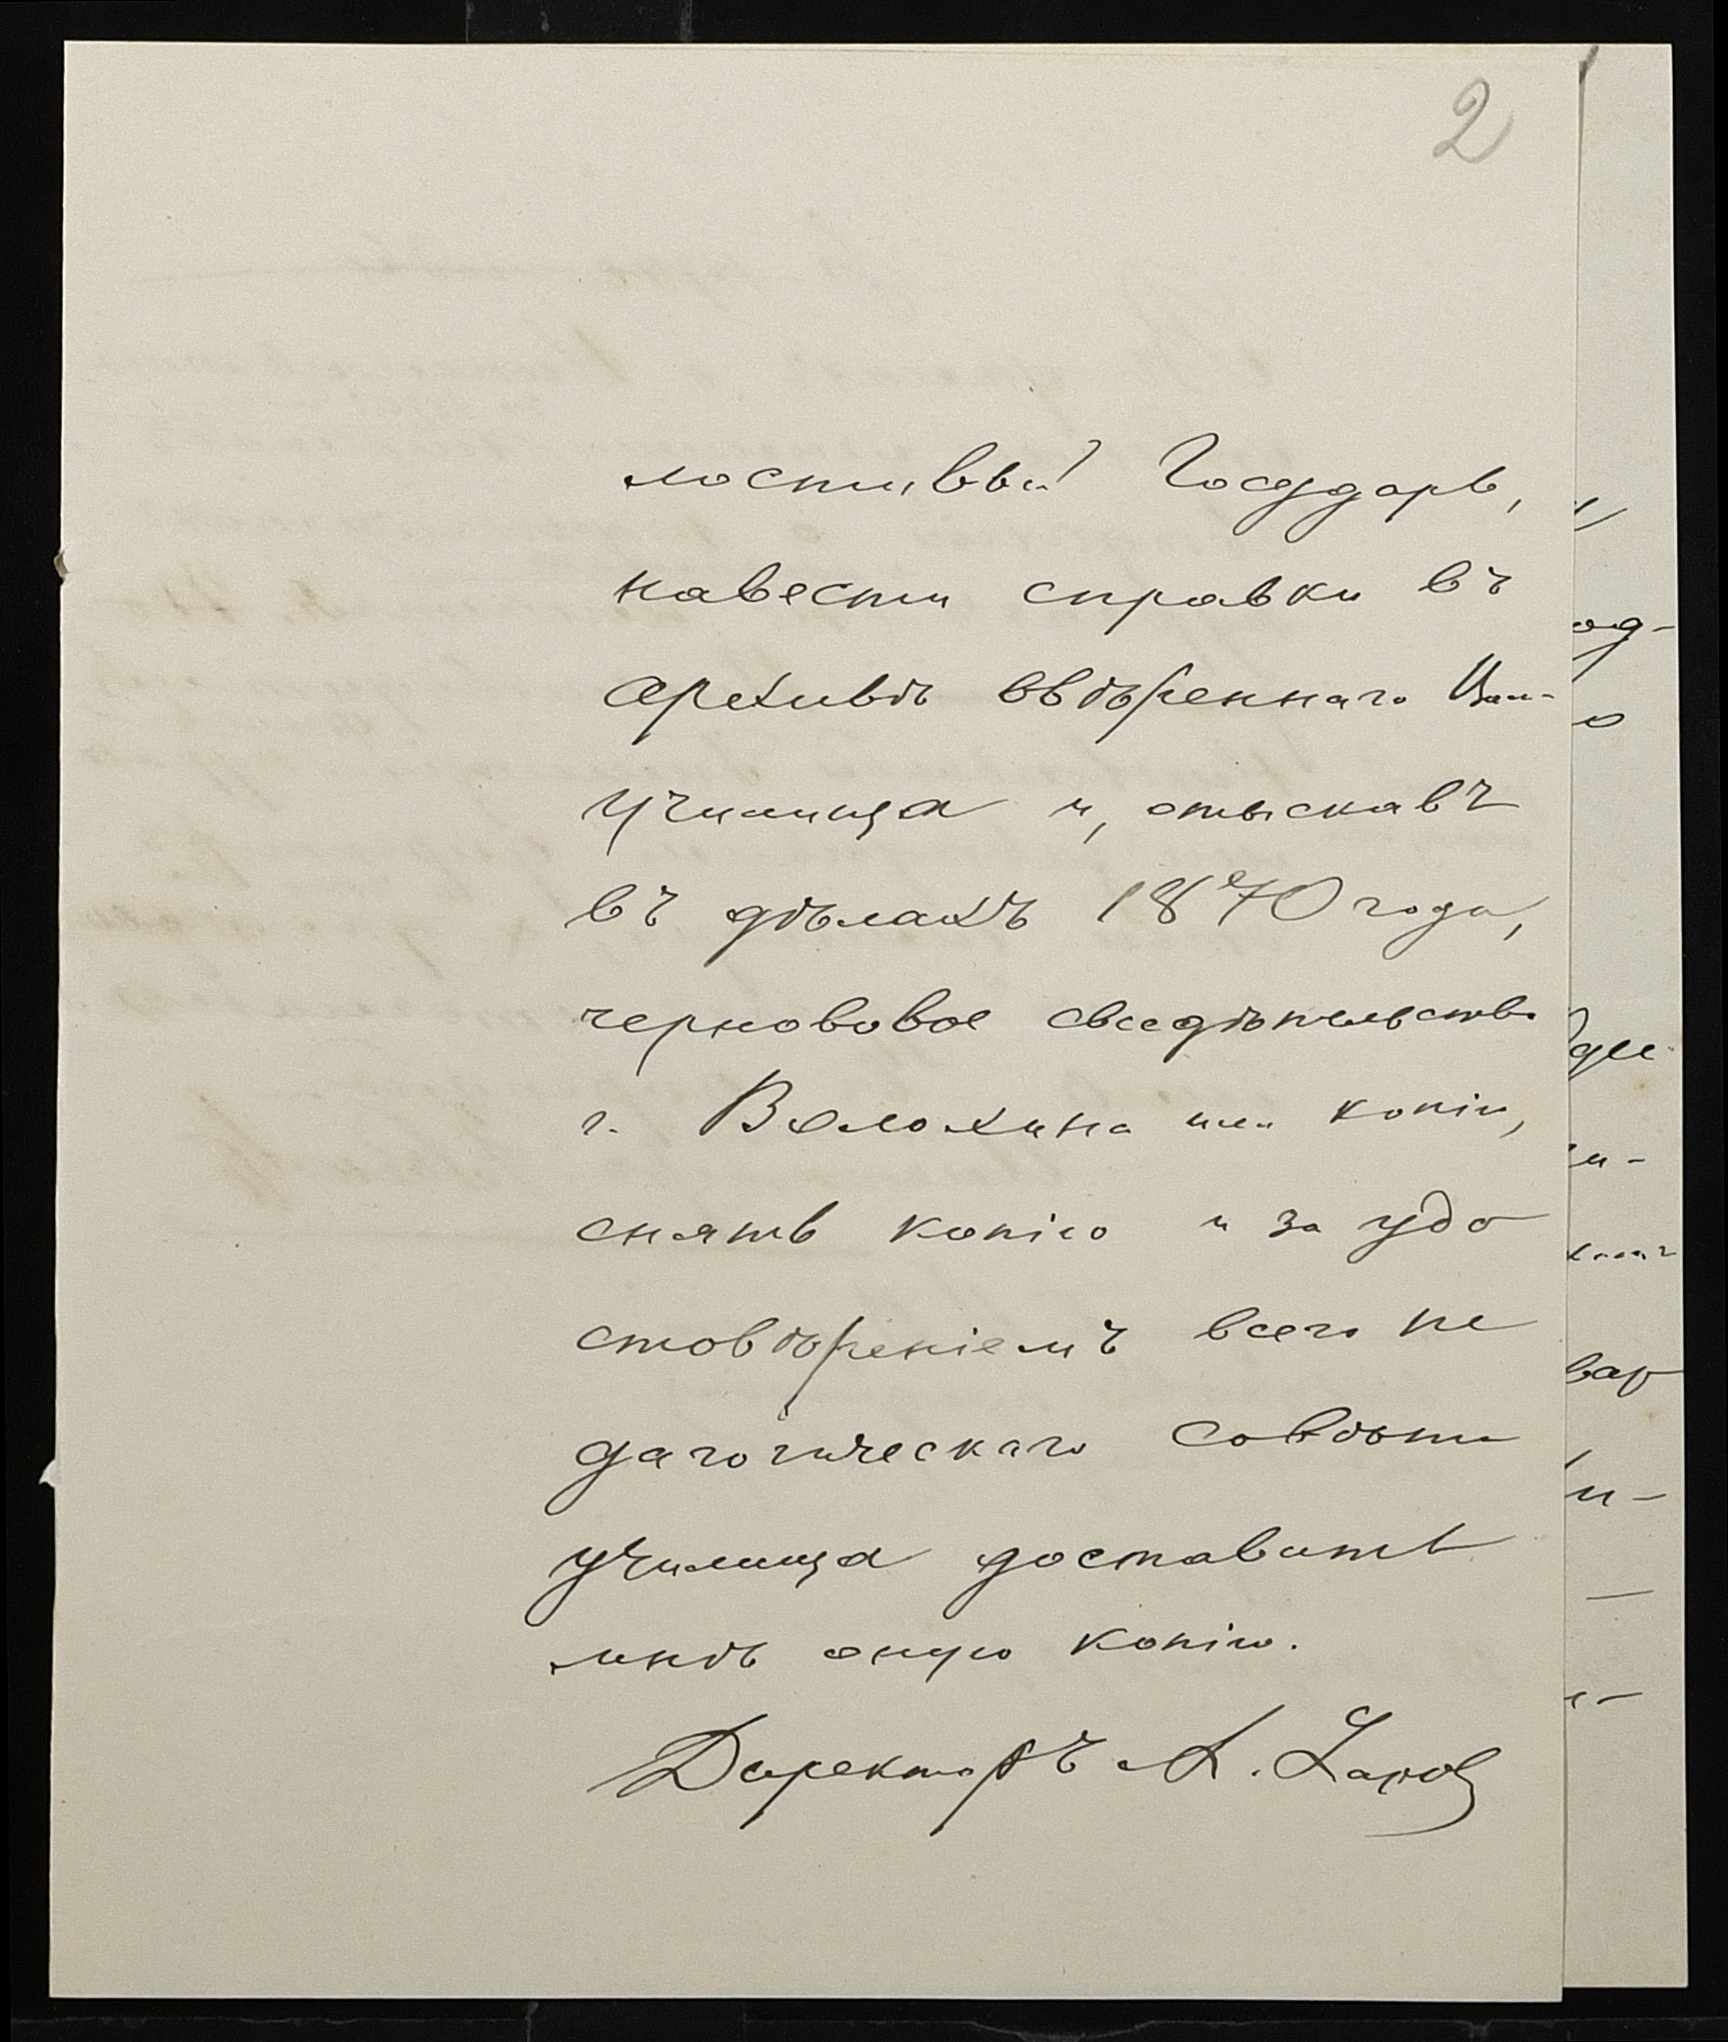 2
лостивый Государь,
навести справки въ
архивѣ ввѣреннаго Вам
училища и, отыскавъ
въ дѣлахъ 1870 года,
черновое свидѣтельство
г. Волохина или копiи,
снять копiю и за удо
стовѣренiемъ всего пе
дагогическаго совѣта
училища доставить
мнѣ оную копiю.
Директоръ А.